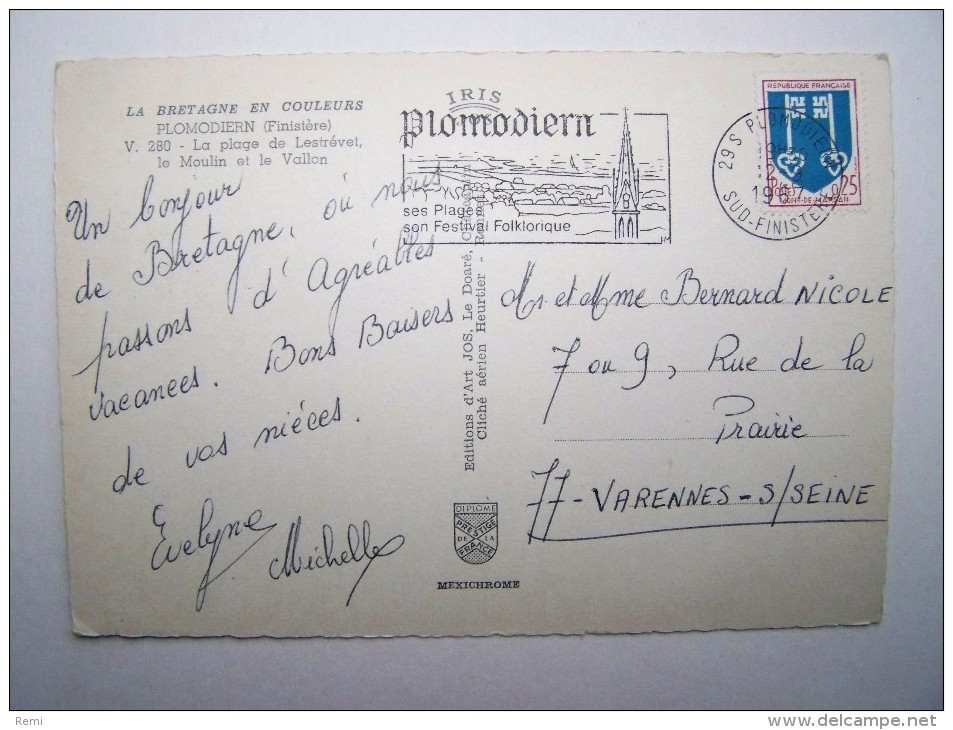 LA BRETAGNE EN COULEURS
PLOMODIERN (Finistère)
V. 280 - La plage de Lestrévet,
le Moulin et le Vallon
Un bonjour
de Bretagne, où nous
passons d'Agréables
vacances. Bons Baisers
de vos nièces.
Evelyne
Michelle
IRIS
Plomodiern
ses Plages
son Festival Folklorique
Editions d'Art JOS, Le Doaré,
Cliché aérien Heurtier -
DIPLOME
PRESTIGE
DE LA
FRANCE
MEXICHROME
REPUBLIQUE FRANÇAISE
0,25
MONT-DE-MARSAN
29S PLOMODIERN
1967
SUD-FINISTERE
Mr et Mme Bernard NICOLE
7 ou 9, Rue de la
Prairie
77-VARENNES-S/SEINE
Remi
www.delcampe.net